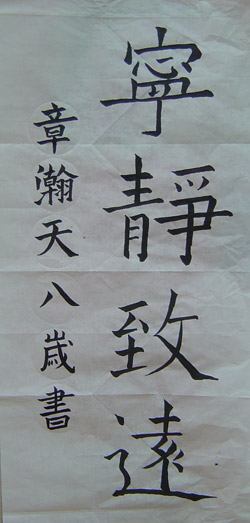 寧靜致遠
章瀚天八歲書